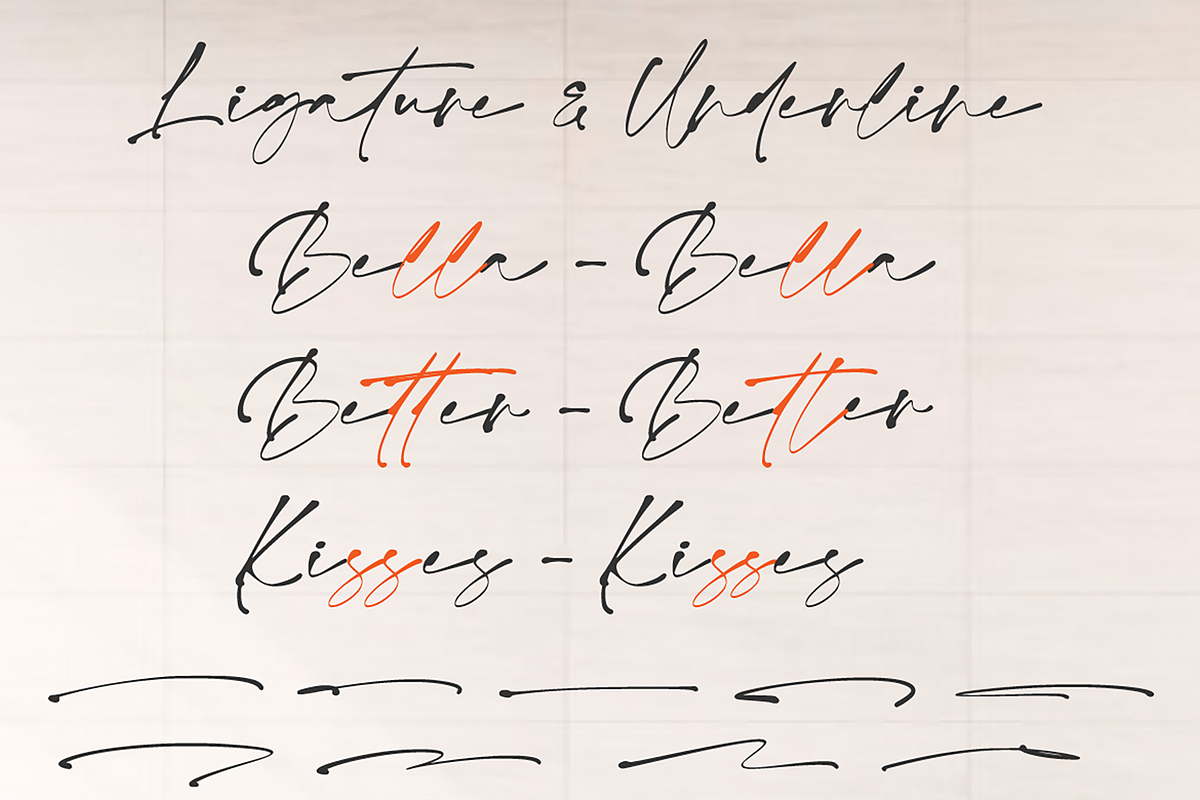 Ligature & Underline
Bella - Bella
Better - Better
Kisses - Kisses